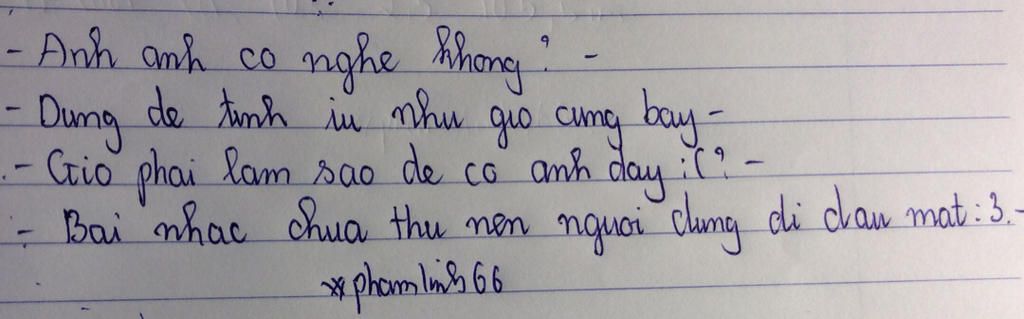 - Anh anh co nghe khong? -
- Dung de tinh iu nhu gio cung bay -
- Gio phai lam sao de co anh day :(? -
- Bai nhac chua thu nen nguoi dung di dau mat :3. -
* phamlinh66